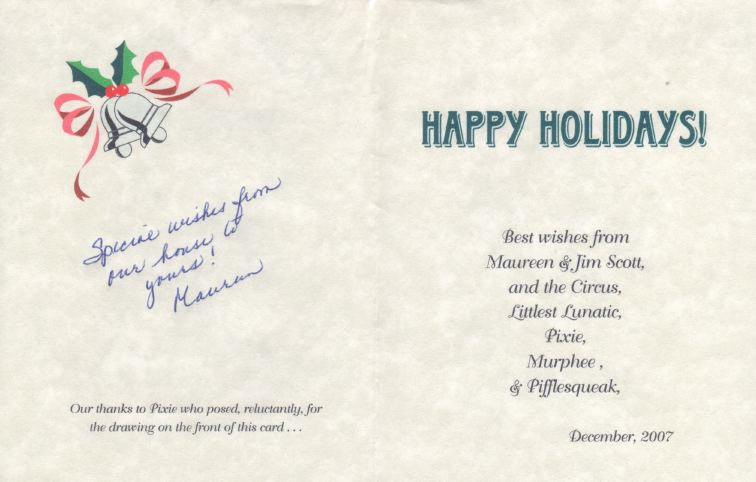 Special wishes from
our house to
yours!
Maureen
Our thanks to Pixie who posed, reluctantly, for
the drawing on the front of this card . . .
HAPPY HOLIDAYS!
Best wishes from
Maureen & Jim Scott,
and the Circus,
Littlest Lunatic,
Pixie,
Murphee ,
& Pifflesqueak,
December, 2007